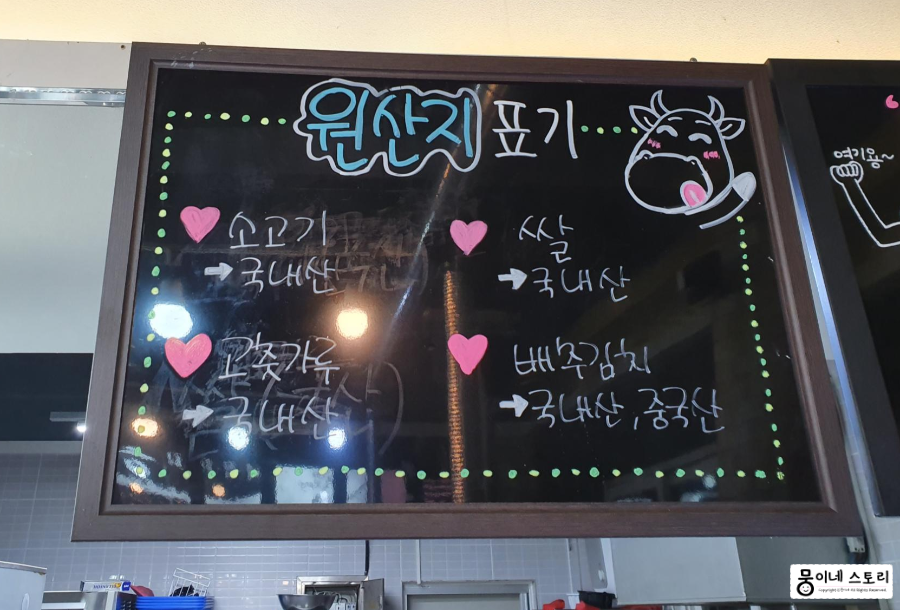 원산지 표기
소고기
→국내산
쌀
→국내산
고춧가루
→국내산
배추김치
→국내산, 중국산
여기용~
몽이네 스토리